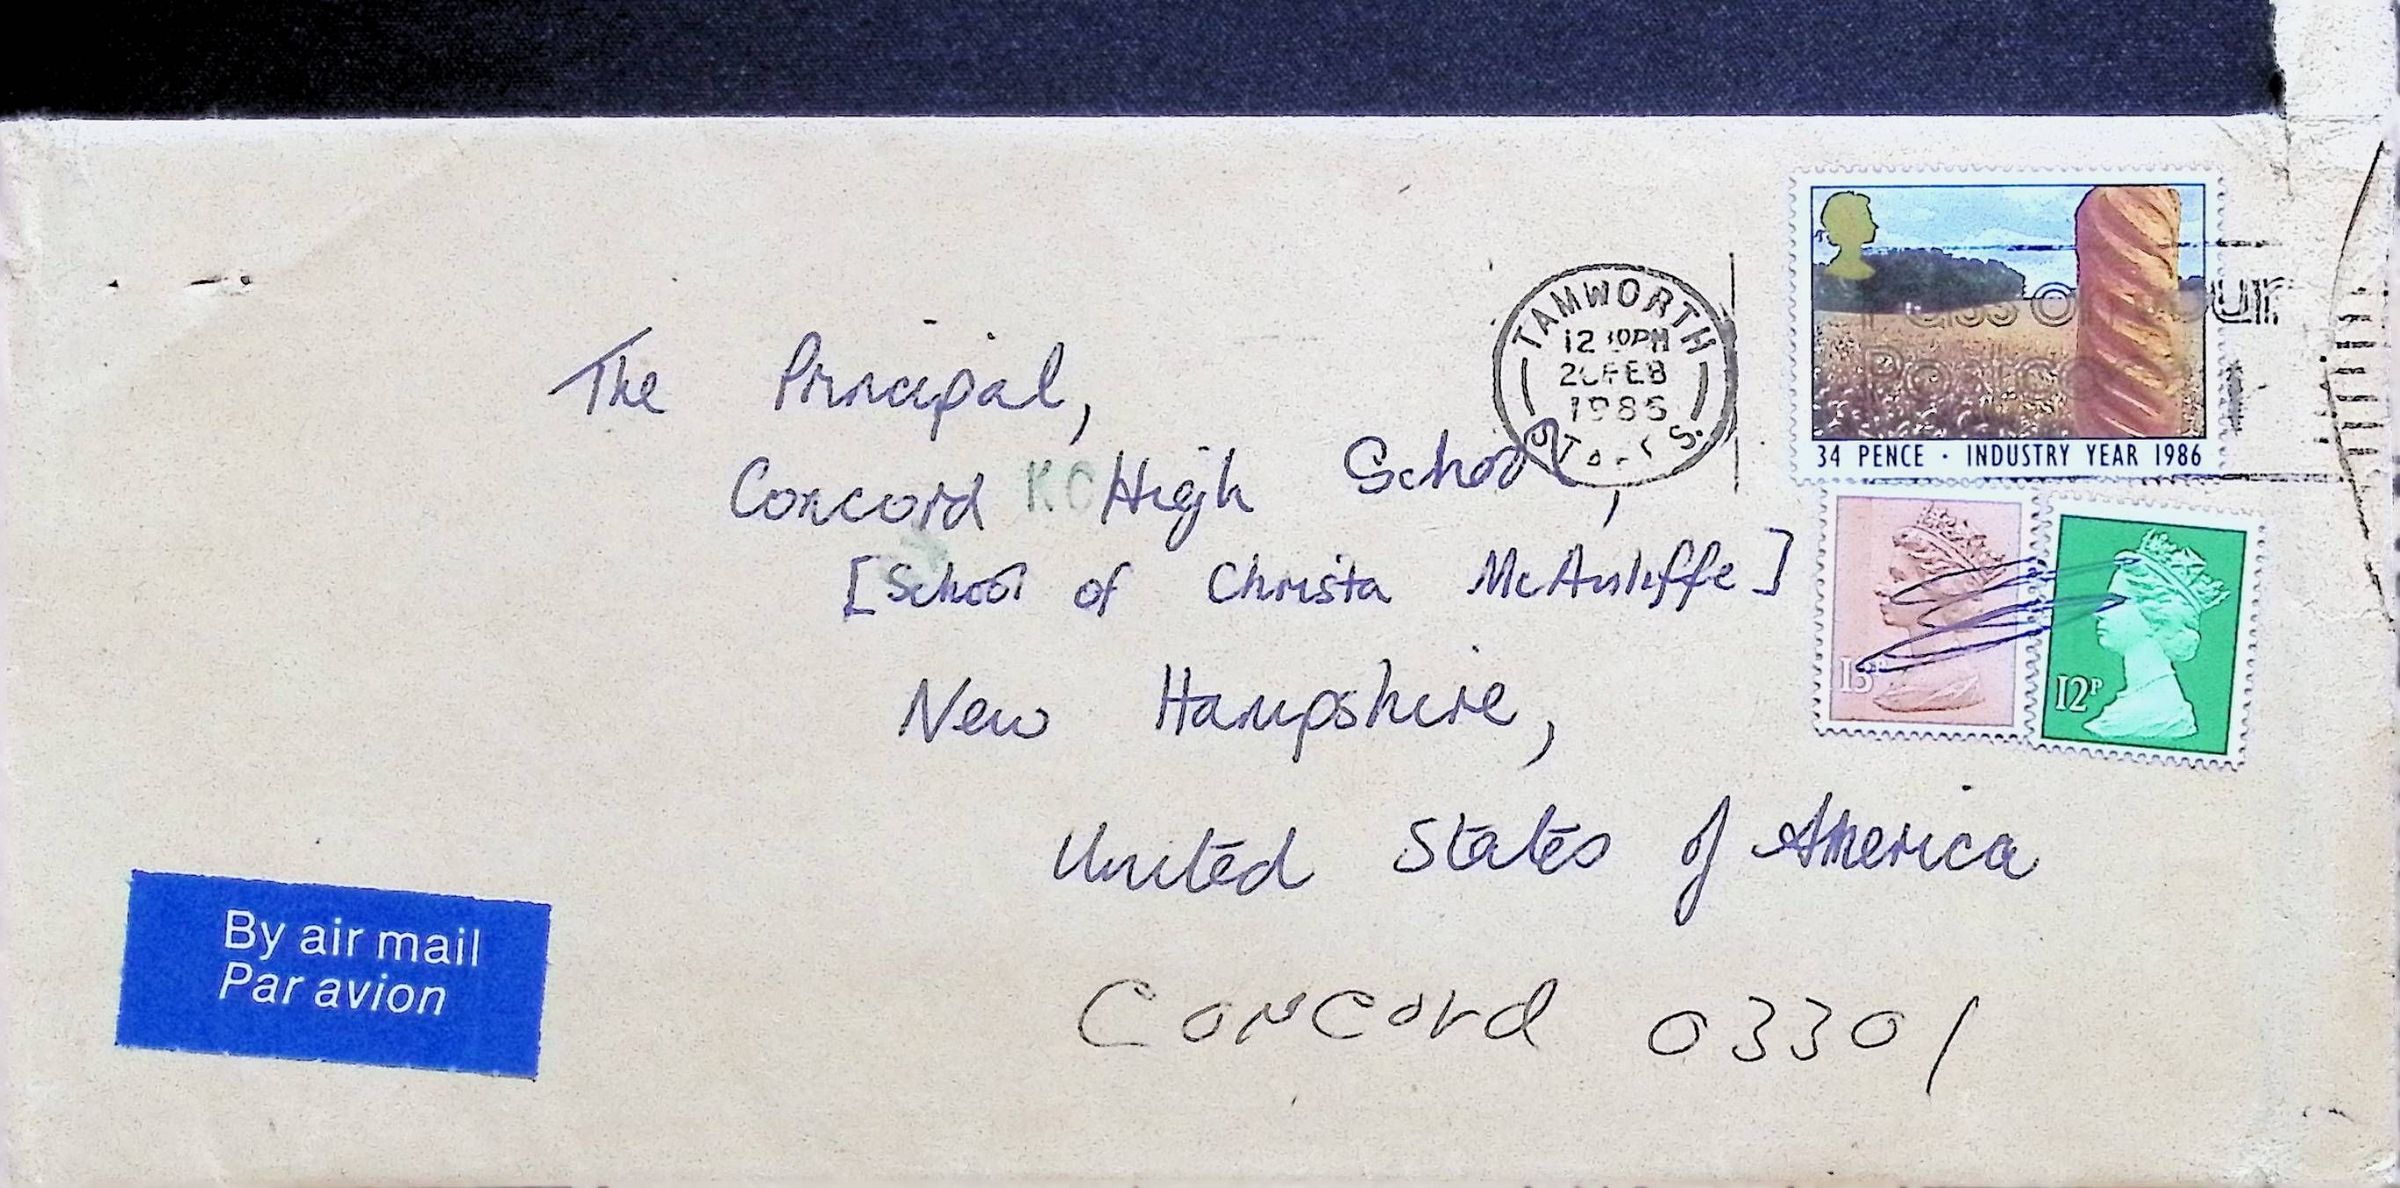 The Principal,
Concord High School,
[School of Christa McAuliffe]
New Hampshire,
United States of America
Concord 03301
By air mail
Par avion
TAMWORTH
PM
FEB
34 PENCE · INDUSTRY YEAR 1986
12P